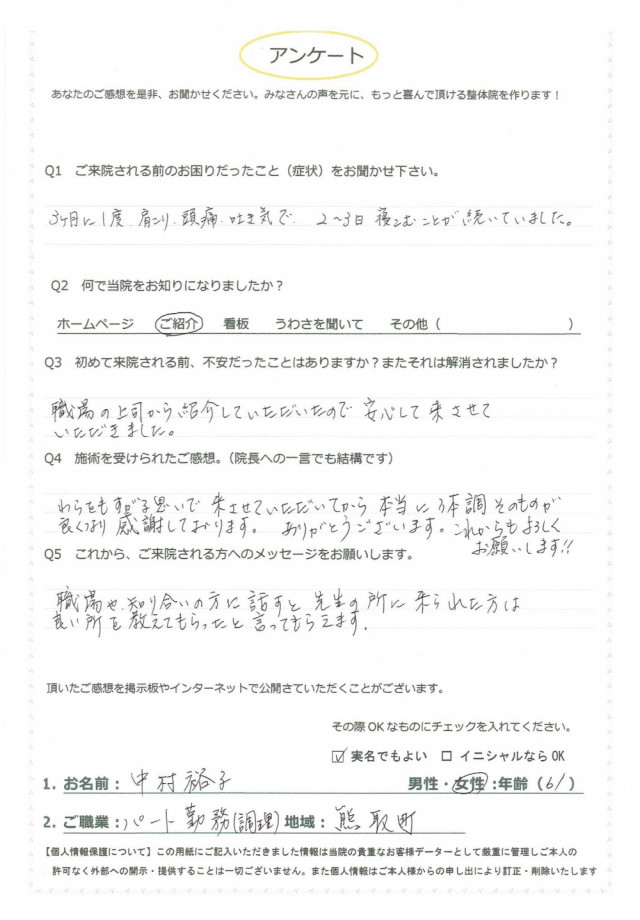 アンケート
あなたのご感想を是非、お聞かせください。みなさんの声を元に、もっと喜んで頂ける整体院を作ります！
Q1 ご来院される前のお困りだったこと（症状）をお聞かせ下さい。
3ヶ月に1度 肩こり、頭痛、吐き気で 2〜3日 寝こむことが続いていました。
Q2 何で当院をお知りになりましたか？
ホームページ ご紹介 看板 うわさを聞いて その他（ ）
Q3 初めて来院される前、不安だったことはありますか？またそれは解消されましたか？
職場の上司から紹介していただいたので 安心して 来させて
いただきました。
Q4 施術を受けられたご感想。（院長への一言でも結構です）
わらをもすがる思いで 来させていただいてから 本当に 体調そのものが
良くなり 感謝しております。 ありがとうございます。これからもよろしく
お願いします!!
Q5 これから、ご来院される方へのメッセージをお願いします。
職場や、知り合いの方に 話すと 先生の所に 来られた方は
良い所を教えてもらったと言ってもらえます。
頂いたご感想を掲示板やインターネットで公開さていただくことがございます。
その際OKなものにチェックを入れてください。
☑ 実名でもよい □ イニシャルならOK
1. お名前：中村裕子 男性・女性：年齢（61）
2. ご職業：パート勤務(調理) 地域：熊取町
【個人情報保護について】この用紙にご記入いただきました情報は当院の貴重なお客様データーとして厳重に管理しご本人の
許可なく外部への開示・提供することは一切ございません。また個人情報はご本人様からの申し出により訂正・削除いたします